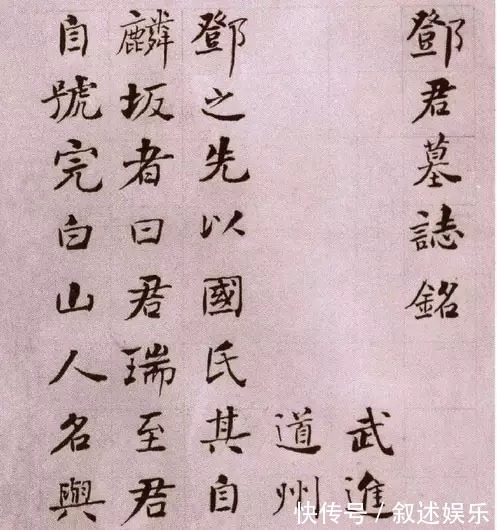 鄧君墓誌銘
武進
道州
鄧之先以國氏其自
麟坂者曰君瑞至君
自號完白山人名與
快传号/叙述娱乐